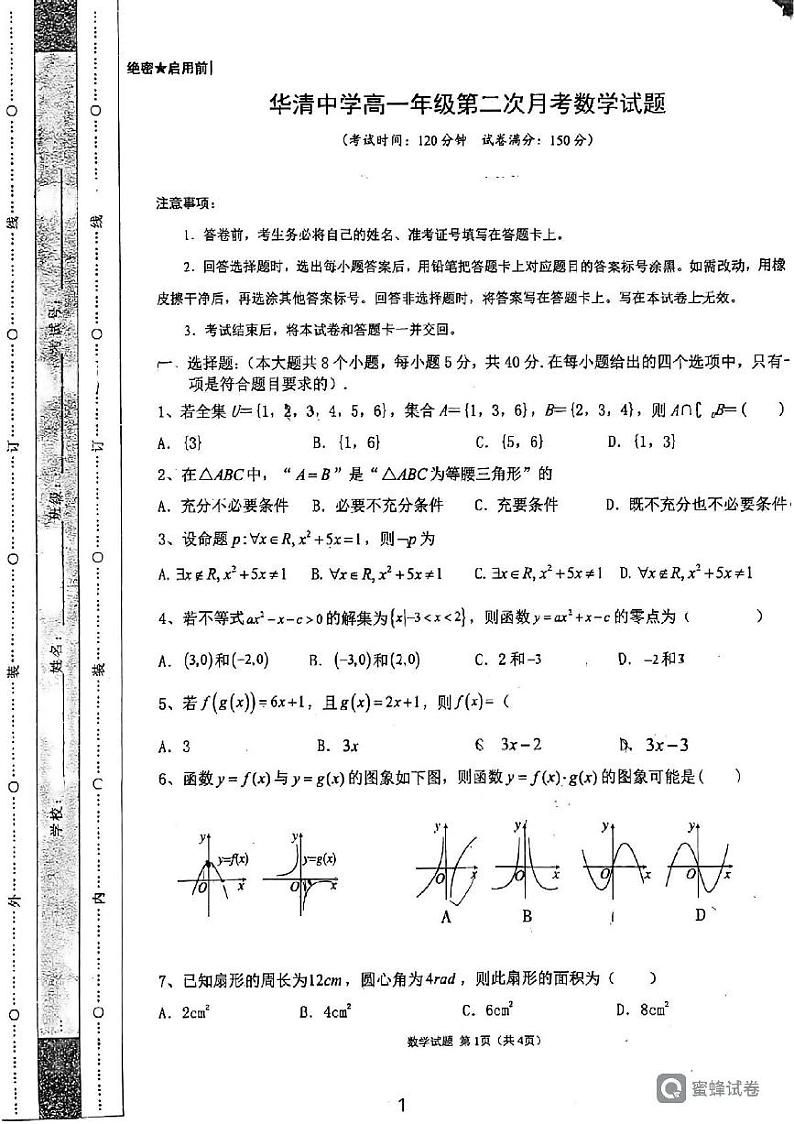 绝密★启用前
华清中学高一年级第二次月考数学试题
（考试时间：120分钟 试卷满分：150分）
注意事项：
1．答卷前，考生务必将自己的姓名、准考证号填写在答题卡上。
2．回答选择题时，选出每小题答案后，用铅笔把答题卡上对应题目的答案标号涂黑。如需改动，用橡
皮擦干净后，再选涂其他答案标号。回答非选择题时，将答案写在答题卡上。写在本试卷上无效。
3．考试结束后，将本试卷和答题卡一并交回。
一．选择题：（本大题共8个小题，每小题5分，共40分.在每小题给出的四个选项中，只有一
项是符合题目要求的）.
1、若全集 U={1, 2, 3, 4, 5, 6}，集合 A={1, 3, 6}，B={2, 3, 4}，则 A∩∁UB=（ ）
A. {3} B. {1, 6} C. {5, 6} D. {1, 3}
2、在△ABC中，“A=B”是“△ABC为等腰三角形”的
A. 充分不必要条件 B. 必要不充分条件 C. 充要条件 D. 既不充分也不必要条件
3、设命题 p:∀x∈R, x²+5x=1，则¬p为
A. ∃x∉R, x²+5x≠1 B. ∀x∈R, x²+5x≠1 C. ∃x∈R, x²+5x≠1 D. ∀x∉R, x²+5x≠1
4、若不等式 ax²-x-c>0 的解集为{x|-3<x<2}，则函数 y=ax²+x-c 的零点为（ ）
A. (3,0)和(-2,0) B. (-3,0)和(2,0) C. 2和-3 D. -2和3
5、若 f(g(x))=6x+1，且 g(x)=2x+1，则 f(x)=（
A. 3 B. 3x C 3x-2 D. 3x-3
6、函数 y=f(x) 与 y=g(x) 的图象如下图，则函数 y=f(x)·g(x) 的图象可能是（ ）
y y=f(x) O x
y y=g(x) O x
y O x
y O x
y O x
y O x
A B D
7、已知扇形的周长为12cm，圆心角为4rad，则此扇形的面积为（ ）
A. 2cm² B. 4cm² C. 6cm² D. 8cm²
数学试题 第1页（共4页）
1
蜜蜂试卷
考试号：
班级：
姓名：
学校：
线
订
装
外
线
订
装
内